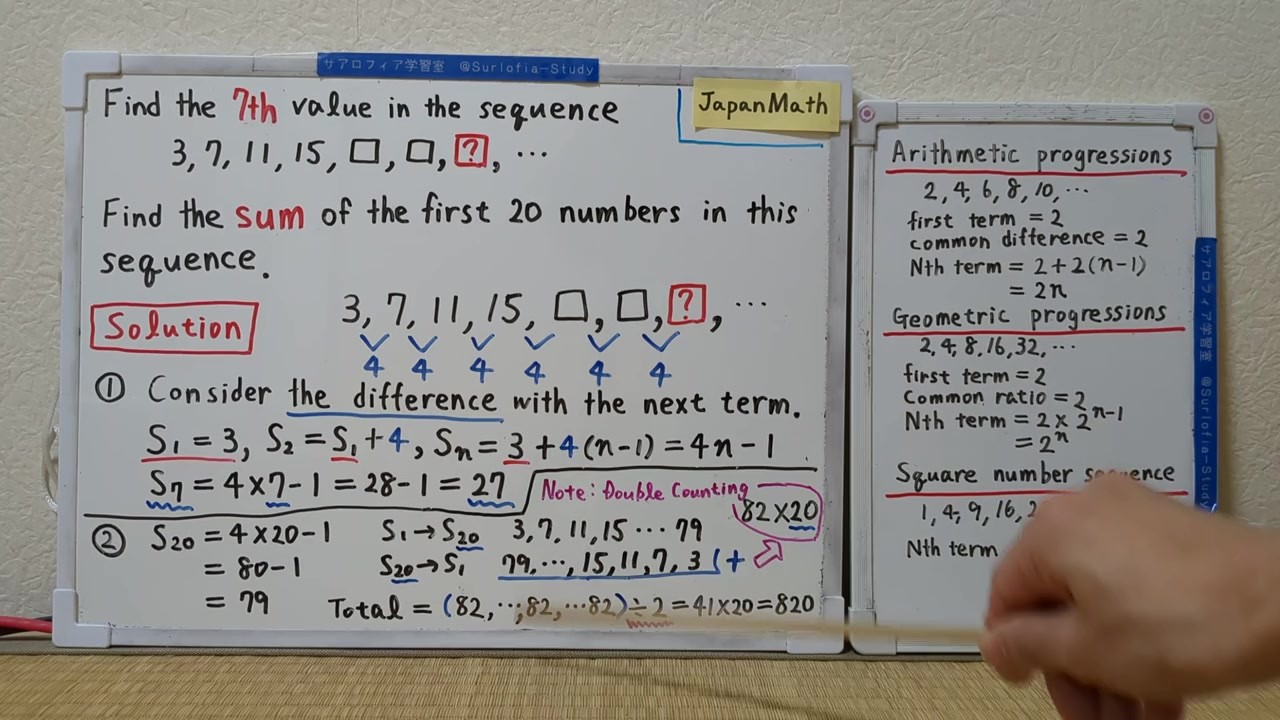 サアロフィア学習室 @Surlofia-Study
JapanMath
Find the 7th value in the sequence
3, 7, 11, 15, □, □, ?, ...
Find the sum of the first 20 numbers in this
sequence.
Solution
3, 7, 11, 15, □, □, ?, ...
4 4 4 4 4 4
① Consider the difference with the next term.
S₁ = 3, S₂ = S₁ + 4, Sₙ = 3 + 4(n-1) = 4n - 1
S₇ = 4×7-1 = 28-1 = 27
Note: Double Counting
82×20
② S₂₀ = 4×20-1
= 80-1
= 79
S₁→S₂₀ 3, 7, 11, 15 ... 79
S₂₀→S₁ 79, ..., 15, 11, 7, 3 (+
Total = (82, ..., 82, ... 82) ÷ 2 = 41×20 = 820
Arithmetic progressions
2, 4, 6, 8, 10, ...
first term = 2
common difference = 2
Nth term = 2+2(n-1)
= 2n
Geometric progressions
2, 4, 8, 16, 32, ...
first term = 2
Common ratio = 2
Nth term = 2 × 2ⁿ⁻¹
= 2ⁿ
Square number sequence
1, 4, 9, 16, 2
Nth term
サアロフィア学習室 @Surlofia-Study